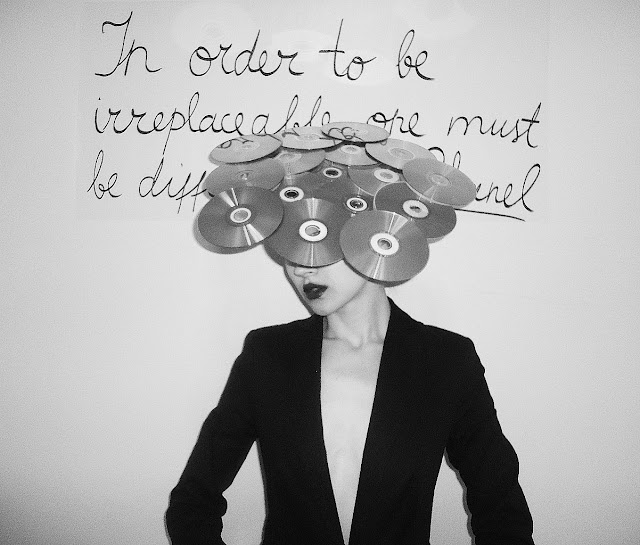 In order to be
irreplaceable one must
be diff